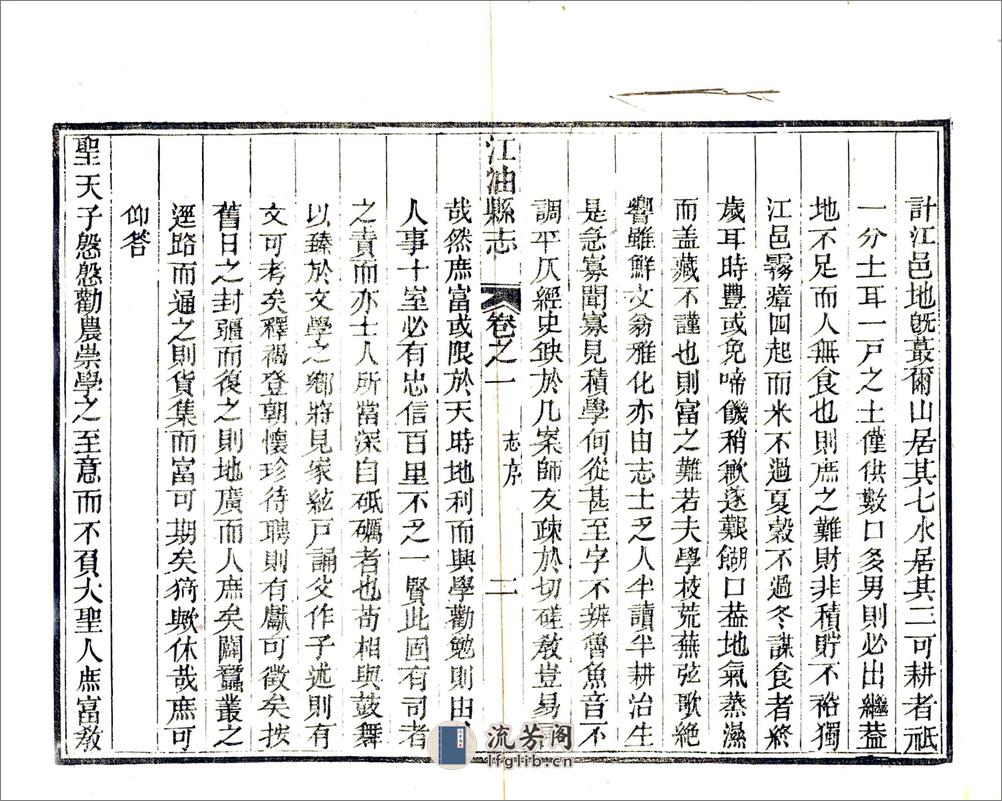 計江邑地旣蕞爾山居其七水居其三可耕者祇
一分土耳一戸之土僅供數口多男則必出繼葢
地不足而人無食也則庶之難財非積貯不裕獨
江邑霧瘴四起而米不過夏穀不過冬謀食者終
歲耳時豐或免啼饑稍歉遂艱餬口葢地氣蒸濕
而盖藏不謹也則富之難若夫學校荒蕪弦歌絶
響雖鮮文翁雅化亦由志士乏人半讀半耕治生
是急寡聞寡見積學何從甚至字不辨魯魚音不
調平仄經史缺於几案師友疎於切磋敎豈易
江油縣志 卷之一 志序 二
哉然庶富或限於天時地利而興學勸勉則由
人事十室必有忠信百里不乏一賢此固有司者
之責而亦士人所當深自砥礪者也苟相與鼓舞
以臻於文學之鄉將見家絃戸誦父作子述則有
文可考矣釋褐登朝懷珍待聘則有獻可徵矣按
舊日之封疆而復之則地廣而人庶矣闢蠶叢之
逕路而通之則貨集而富可期矣猗歟休哉庶可
仰答
聖天子慇慇勸農崇學之至意而不負大聖人庶富敎
流芳阁
lfglib.cn